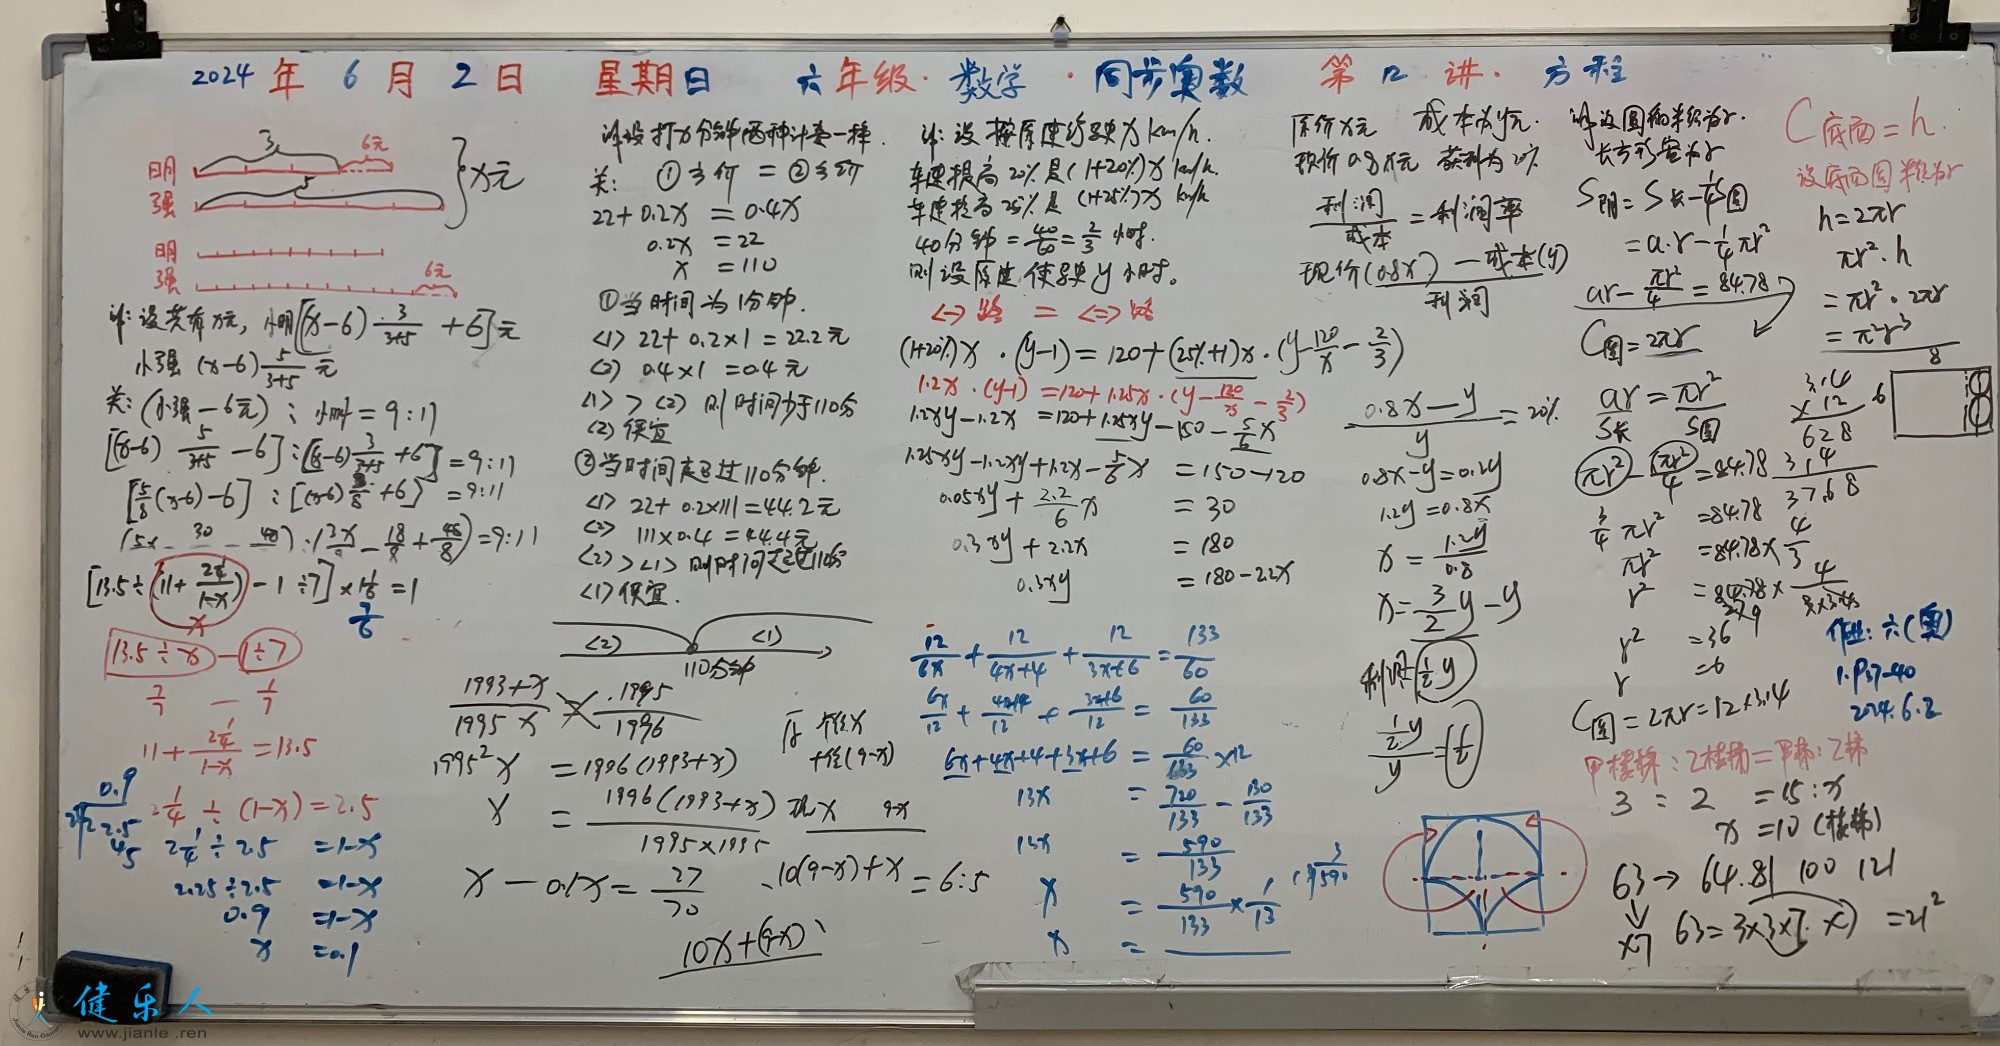 2024年6月2日 星期日 六年级·数学·同步奥数 第12讲·方程
3 6元
明
强
5
}x元
明
强 6元
解:设共有x元, 小明[(x-6)·3/(3+5)+6]元
小强 (x-6)5/(3+5)元
关:(小强-6元):小明=9:11
[(x-6)5/(3+5)-6]:[(x-6)3/(3+5)+6]=9:11
[5/8(x-6)-6]:[(x-6)3/8+6]=9:11
[13.5÷(11+2¼/(1-x))-1÷7]×1⅙=1
x 7/6
13.5÷x-1÷7
7/7-1/7
11+2¼/(1-x)=13.5
2¼÷(1-x)=2.5
2¼÷2.5=1-x
2.25÷2.5=1-x
0.9=1-x
x=0.1
解设打x分钟两种计费一样.
关: ① = ②
22+0.2x=0.4x
0.2x=22
x=110
①当时间为1分钟.
<1> 22+0.2×1=22.2元
<2> 0.4×1=0.4元
<1> > <2> 则时间少于110分
<2>便宜
②当时间超过110分钟.
<1> 22+0.2×111=44.2元
<2> 111×0.4=44.4元
<2> > <1> 则时间超过110分
<1>便宜.
<2> <1>
110分钟
(1993+x)/(1995x) 1995/1996
1995²x=1996(1993+x)
x=1996(1993+x)/(1995×1995)
x-0.1x=27/70
10(9-x)+x=6:5
10x+(9-x)
解:设按原速行驶x km/h.
车速提高20%是(1+20%)x km/h.
车速提高25%是(1+25%)x km/h
40分钟=40/60=2/3小时.
则设原速使驶y小时。
<->路=<=>路
(1+20%)x·(y-1)=120+(25%+1)x·(y-120/x-2/3)
1.2x·(y-1)=120+1.25x·(y-120/x-2/3)
1.2xy-1.2x=120+1.25xy-150-5/6x
1.25xy-1.2xy+1.2x-5/6x=150-120
0.05xy+2.2/6x=30
0.3xy+2.2x=180
0.3xy=180-2.2x
12/6x+12/(4x+4)+12/(3x+6)=133/60
6x/12+(4x+4)/12+(3x+6)/12=60/133
6x+4x+4+3x+6=60/133×12
13x=720/133-130/133
13x=590/133
x=590/133×1/13
x=
原价x元 成本为y元.
现价0.8x元 获利为20%
利润/成本=利润率
现价(0.8x)-成本(y)
利润
(0.8x-y)/y=20%
0.8x-y=0.2y
1.2y=0.8x
x=1.2y/0.8
x=3/2y-y
利润=½y
½y/y=½
解设圆的半径为r.
长方形宽为r
S阴=S长-¼S圆
=a·r-¼πr²
ar-πr²/4=84.78
C圆=2πr
ar=πr²
S长 S圆
πr²-πr²/4=84.78
3/4πr²=84.78
πr²=84.78×4/3
r²=84.78×4/(3×3.14)
r²=36
r=6
C圆=2πr=12×3.14
C底面=h.
设底面圆半径为r
h=2πr
πr²·h
=πr²·2πr
=π²r³
8
6
3.14
×12
628
314
3768
作业:六(奥)
1.P37-40
2024.6.2
甲楼梯:乙楼梯=甲梯:乙梯
3:2=15:x
x=10(楼梯)
63→64.81 100 121
×7 63=3×3×7×7=21²
健乐人
www.jianle.ren